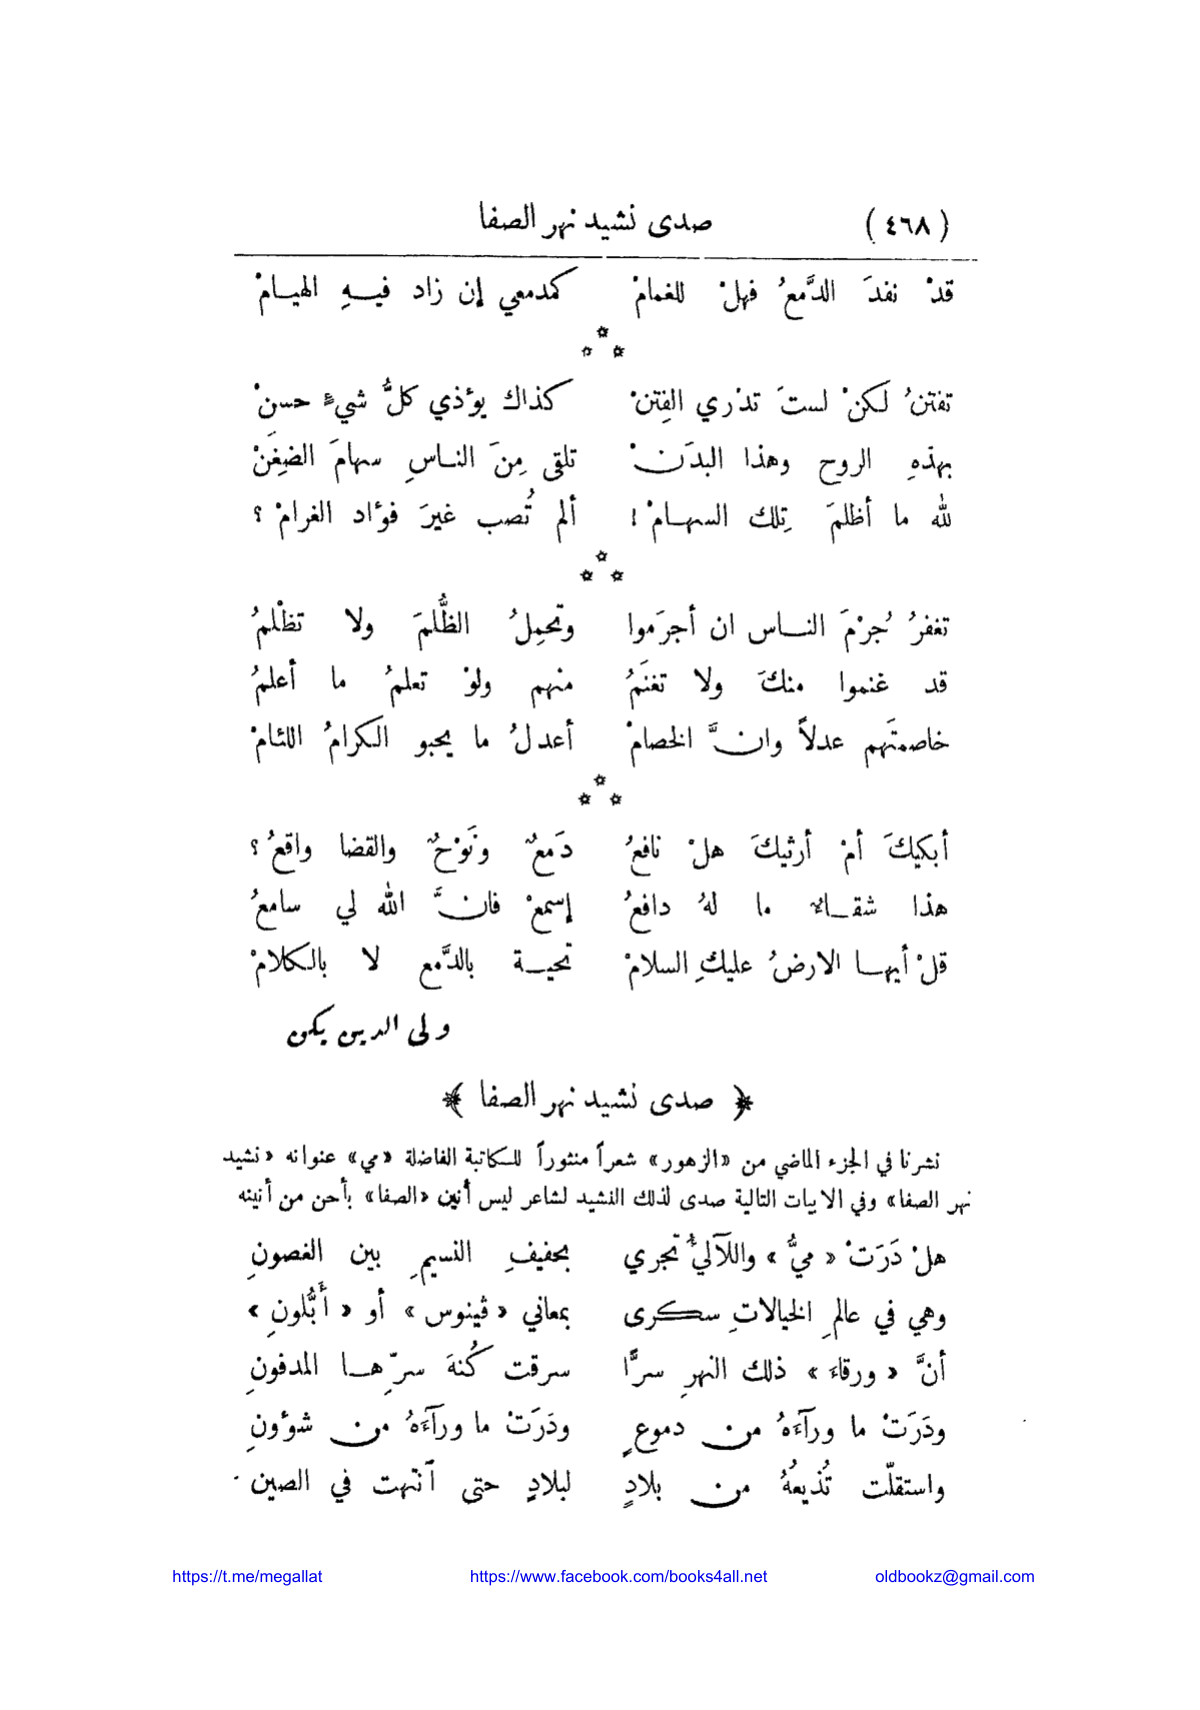 (٤٦٨) صدى نشيد نهر الصفا
قدْ نفدَ الدَّمعُ فهلْ للغمامْ كمدمعي إن زاد فيهِ الهيامْ
تفتنُ لكنْ لستَ تدْري الفِتنْ كذاك يؤذي كلُّ شيءٍ حسنْ
بهذهِ الروح وهذا البدَنْ تلقى مِنَ الناسِ سهامَ الضِغَنْ
لله ما أظلمَ تِلك السهامْ! ألم تُصب غيرَ فؤاد الغرامْ ؟
تغفرُ جُرْمَ الناس ان أجرَموا وتحمِلُ الظُّلمَ ولا تظْلمُ
قد غنموا منكَ ولا تغنَمُ منهم ولوْ تعلمُ ما أعلمُ
خاصمتَهم عدلاً وانَّ الخصامْ أعدلُ ما يحبو الكرامُ اللئامْ
أبكيكَ أمْ أرثيكَ هلْ نافعُ دَمعٌ ونَوْحٌ والقضا واقعُ ؟
هذا شقاءٌ ما لهُ دافعُ إسمعْ فانَّ الله لي سامعُ
قلْ أيها الارضُ عليكِ السلامْ تحية بالدَّمع لا بالكلامْ
ولى الدين يكن
﴿ صدى نشيد نهر الصفا ﴾
نشرنا في الجزء الماضي من «الزهور» شعراً منثوراً للكاتبة الفاضلة «مي» عنوانه «نشيد
نهر الصفا» وفي الابيات التالية صدى لذلك النشيد لشاعر ليس أنين «الصفا» بأحن من أنينه
هلْ دَرَتْ « ميُّ » واللآليُّ تجري بحفيفِ النسيمِ بين الغصونِ
وهي في عالمِ الخيالاتِ سكرى بمعاني « ڤينوس » أو « أَبُّلونِ »
أنَّ « ورقاءَ » ذلك النهرِ سرًّا سرقت كُنهَ سرِّها المدفونِ
ودَرَتْ ما ورآءَهُ من دموعٍ ودَرَتْ ما ورآءَهُ من شؤونِ
واستقلّت تُذيعُهُ من بلادٍ لبلادٍ حتى آنتهت في الصينِ
https://t.me/megallat https://www.facebook.com/books4all.net oldbookz@gmail.com